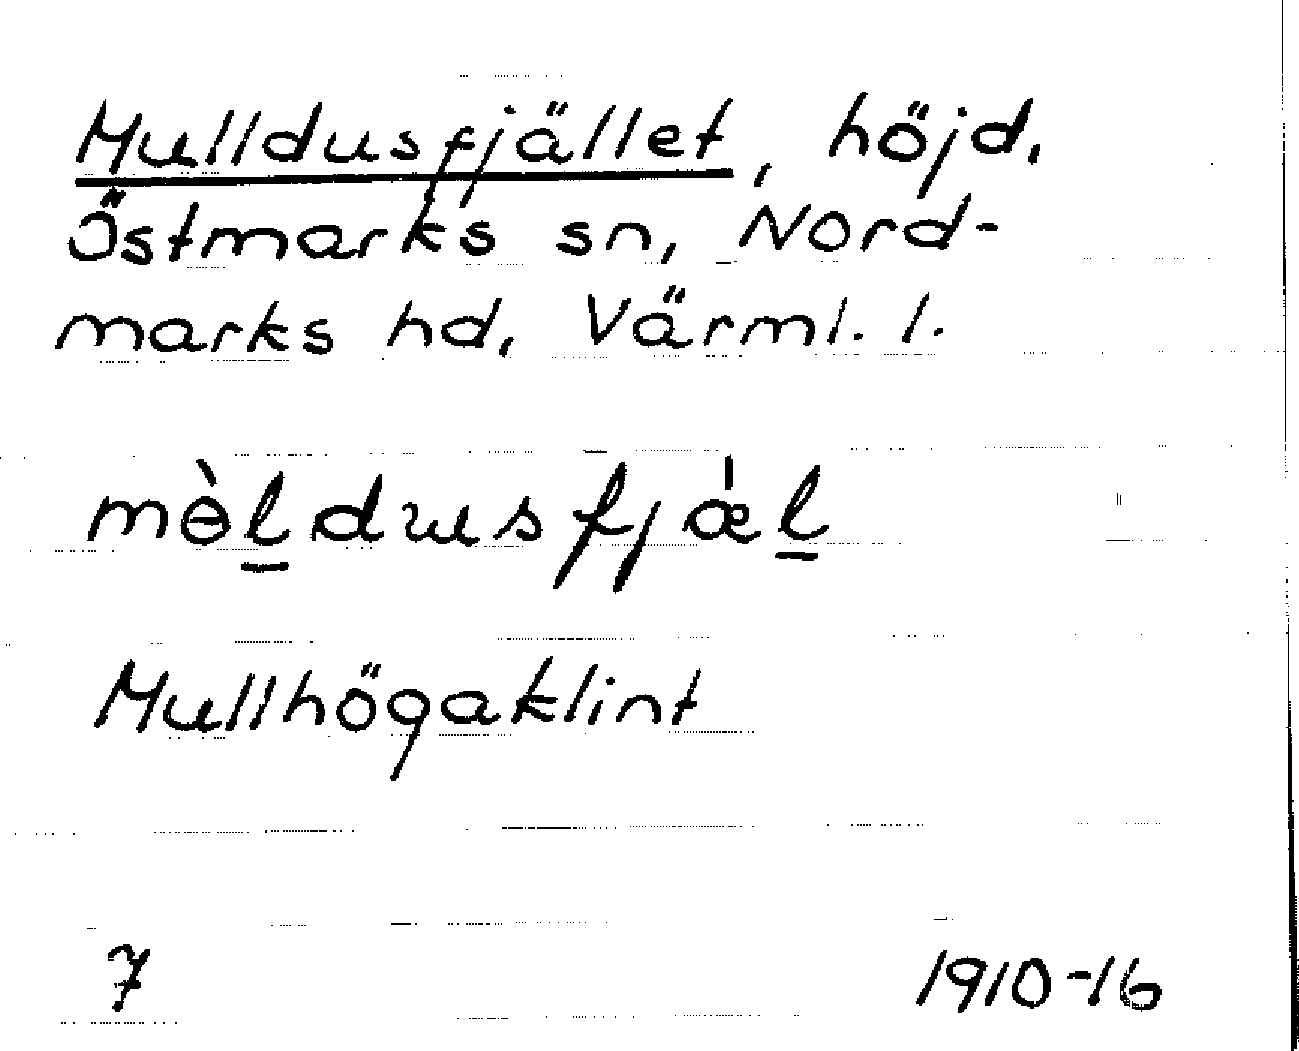 Mulldusfjället, höjd,
Östmarks sn, Nord-
marks hd, Värml. l.
mɵ̀l̲dusfjǽl̲
Mullhögaklint
7 1910-16